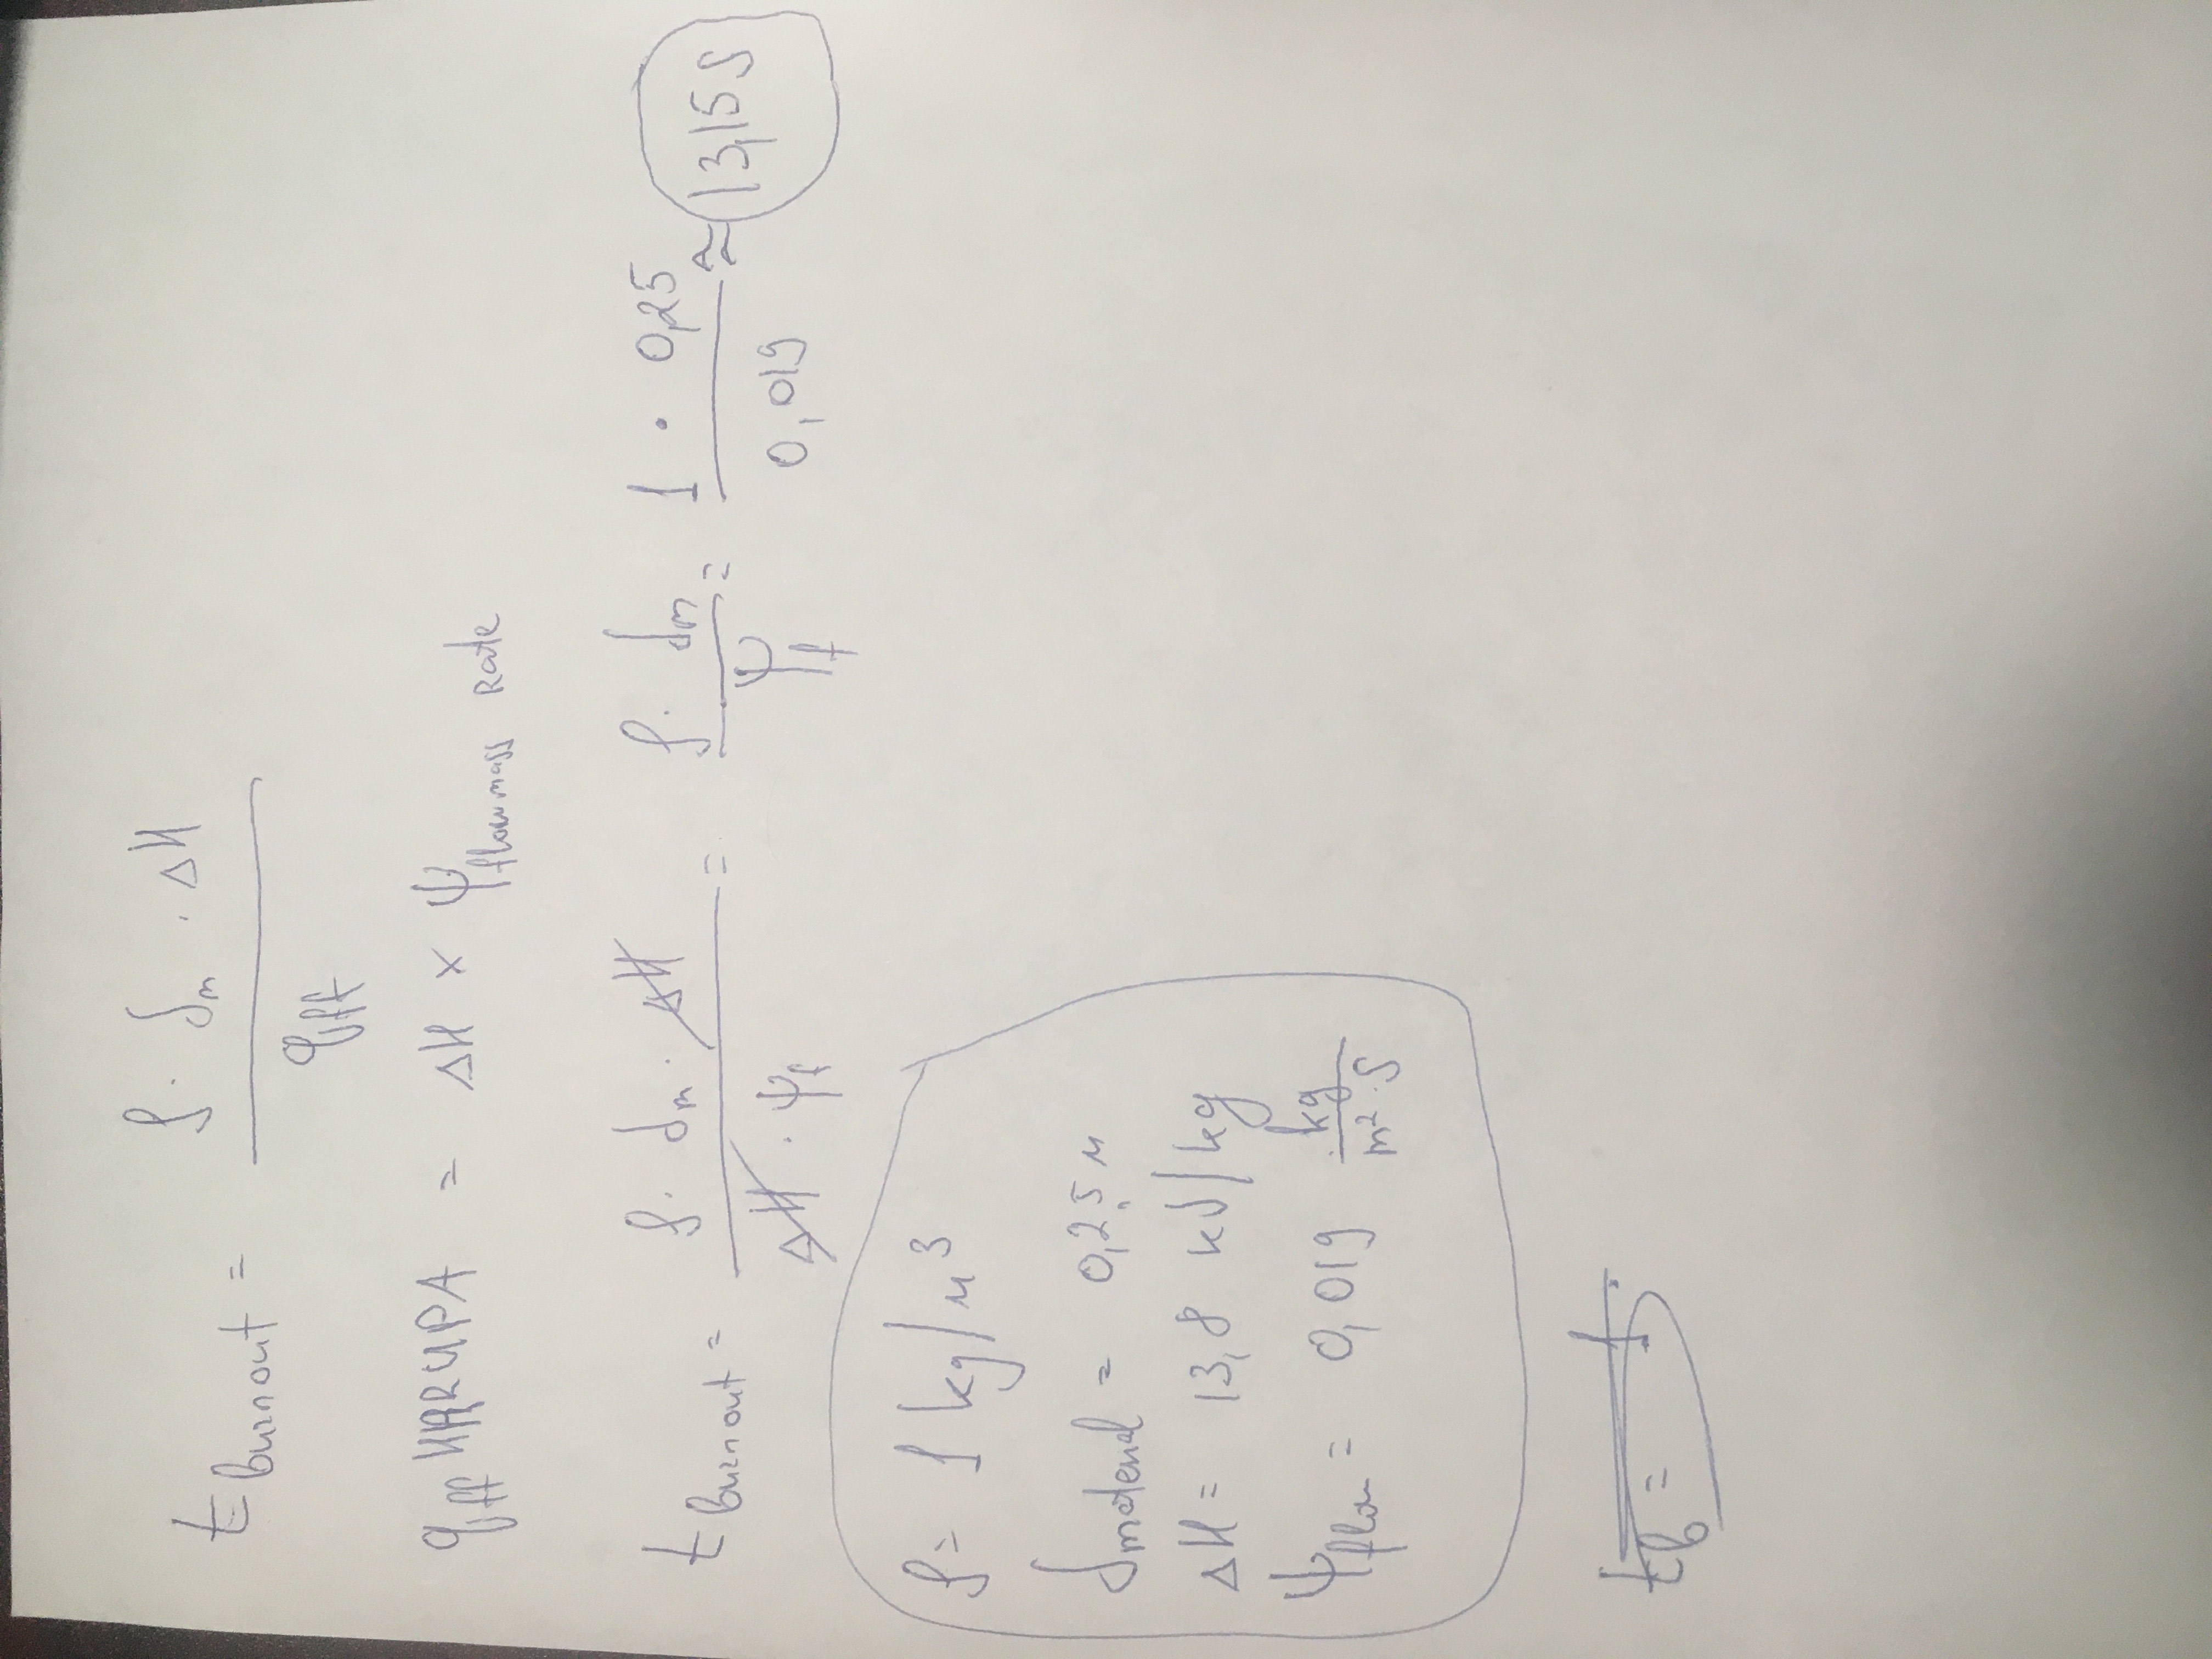 t burnout = ρ · δm · ΔH / qff
qff HRRUPA = ΔH × ψ flow mass rate
t burnout = ρ · δm · ΔH / ΔH · ψf = ρ · δm / ψf = 1 · 0,25 / 0,019 ≈ 13,15 s
ρ = 1 kg/м³
δ material = 0,25 м
ΔH = 13,8 kJ/kg
ψ flow = 0,019 kg / m² · s
tb =